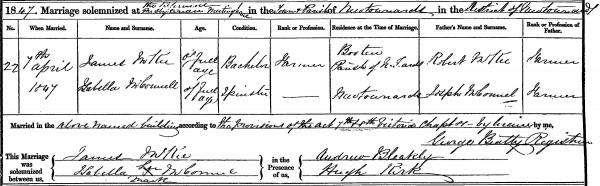 1847. Marriage solemnized at the Reformed Presbyterian Meetinghouse, in the Town & Parish of Newtownards, in the District of Newtownards
No. When Married. Name and Surname. Age. Condition. Rank or Profession. Residence at the Time of Marriage. Father's Name and Surname. Rank or Profession of Father.
22 7th April 1847 James McKee of full age Bachelor Farmer Parish of N.Tards Robert McKee Farmer
Isabella McConnell of full age Spinster Newtownards Joseph McConnel Farmer
Married in the above named building according to the provisions of the act, by licence by me,
George Beatty Registrar
This Marriage was solemnized between us, James McKee
Isabella her X mark McConnel
in the Presence of us, Andrew Bleakely
Hugh Kirk